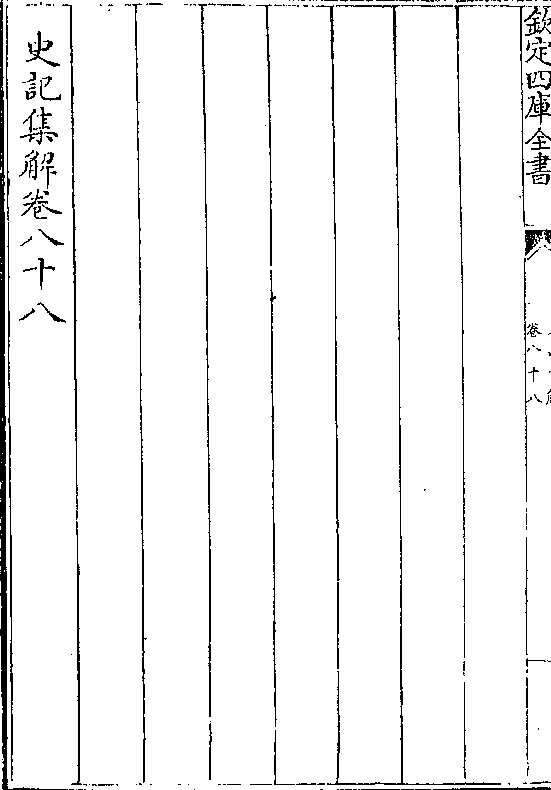 欽定四庫全書
卷八十八
史記集解卷八十八